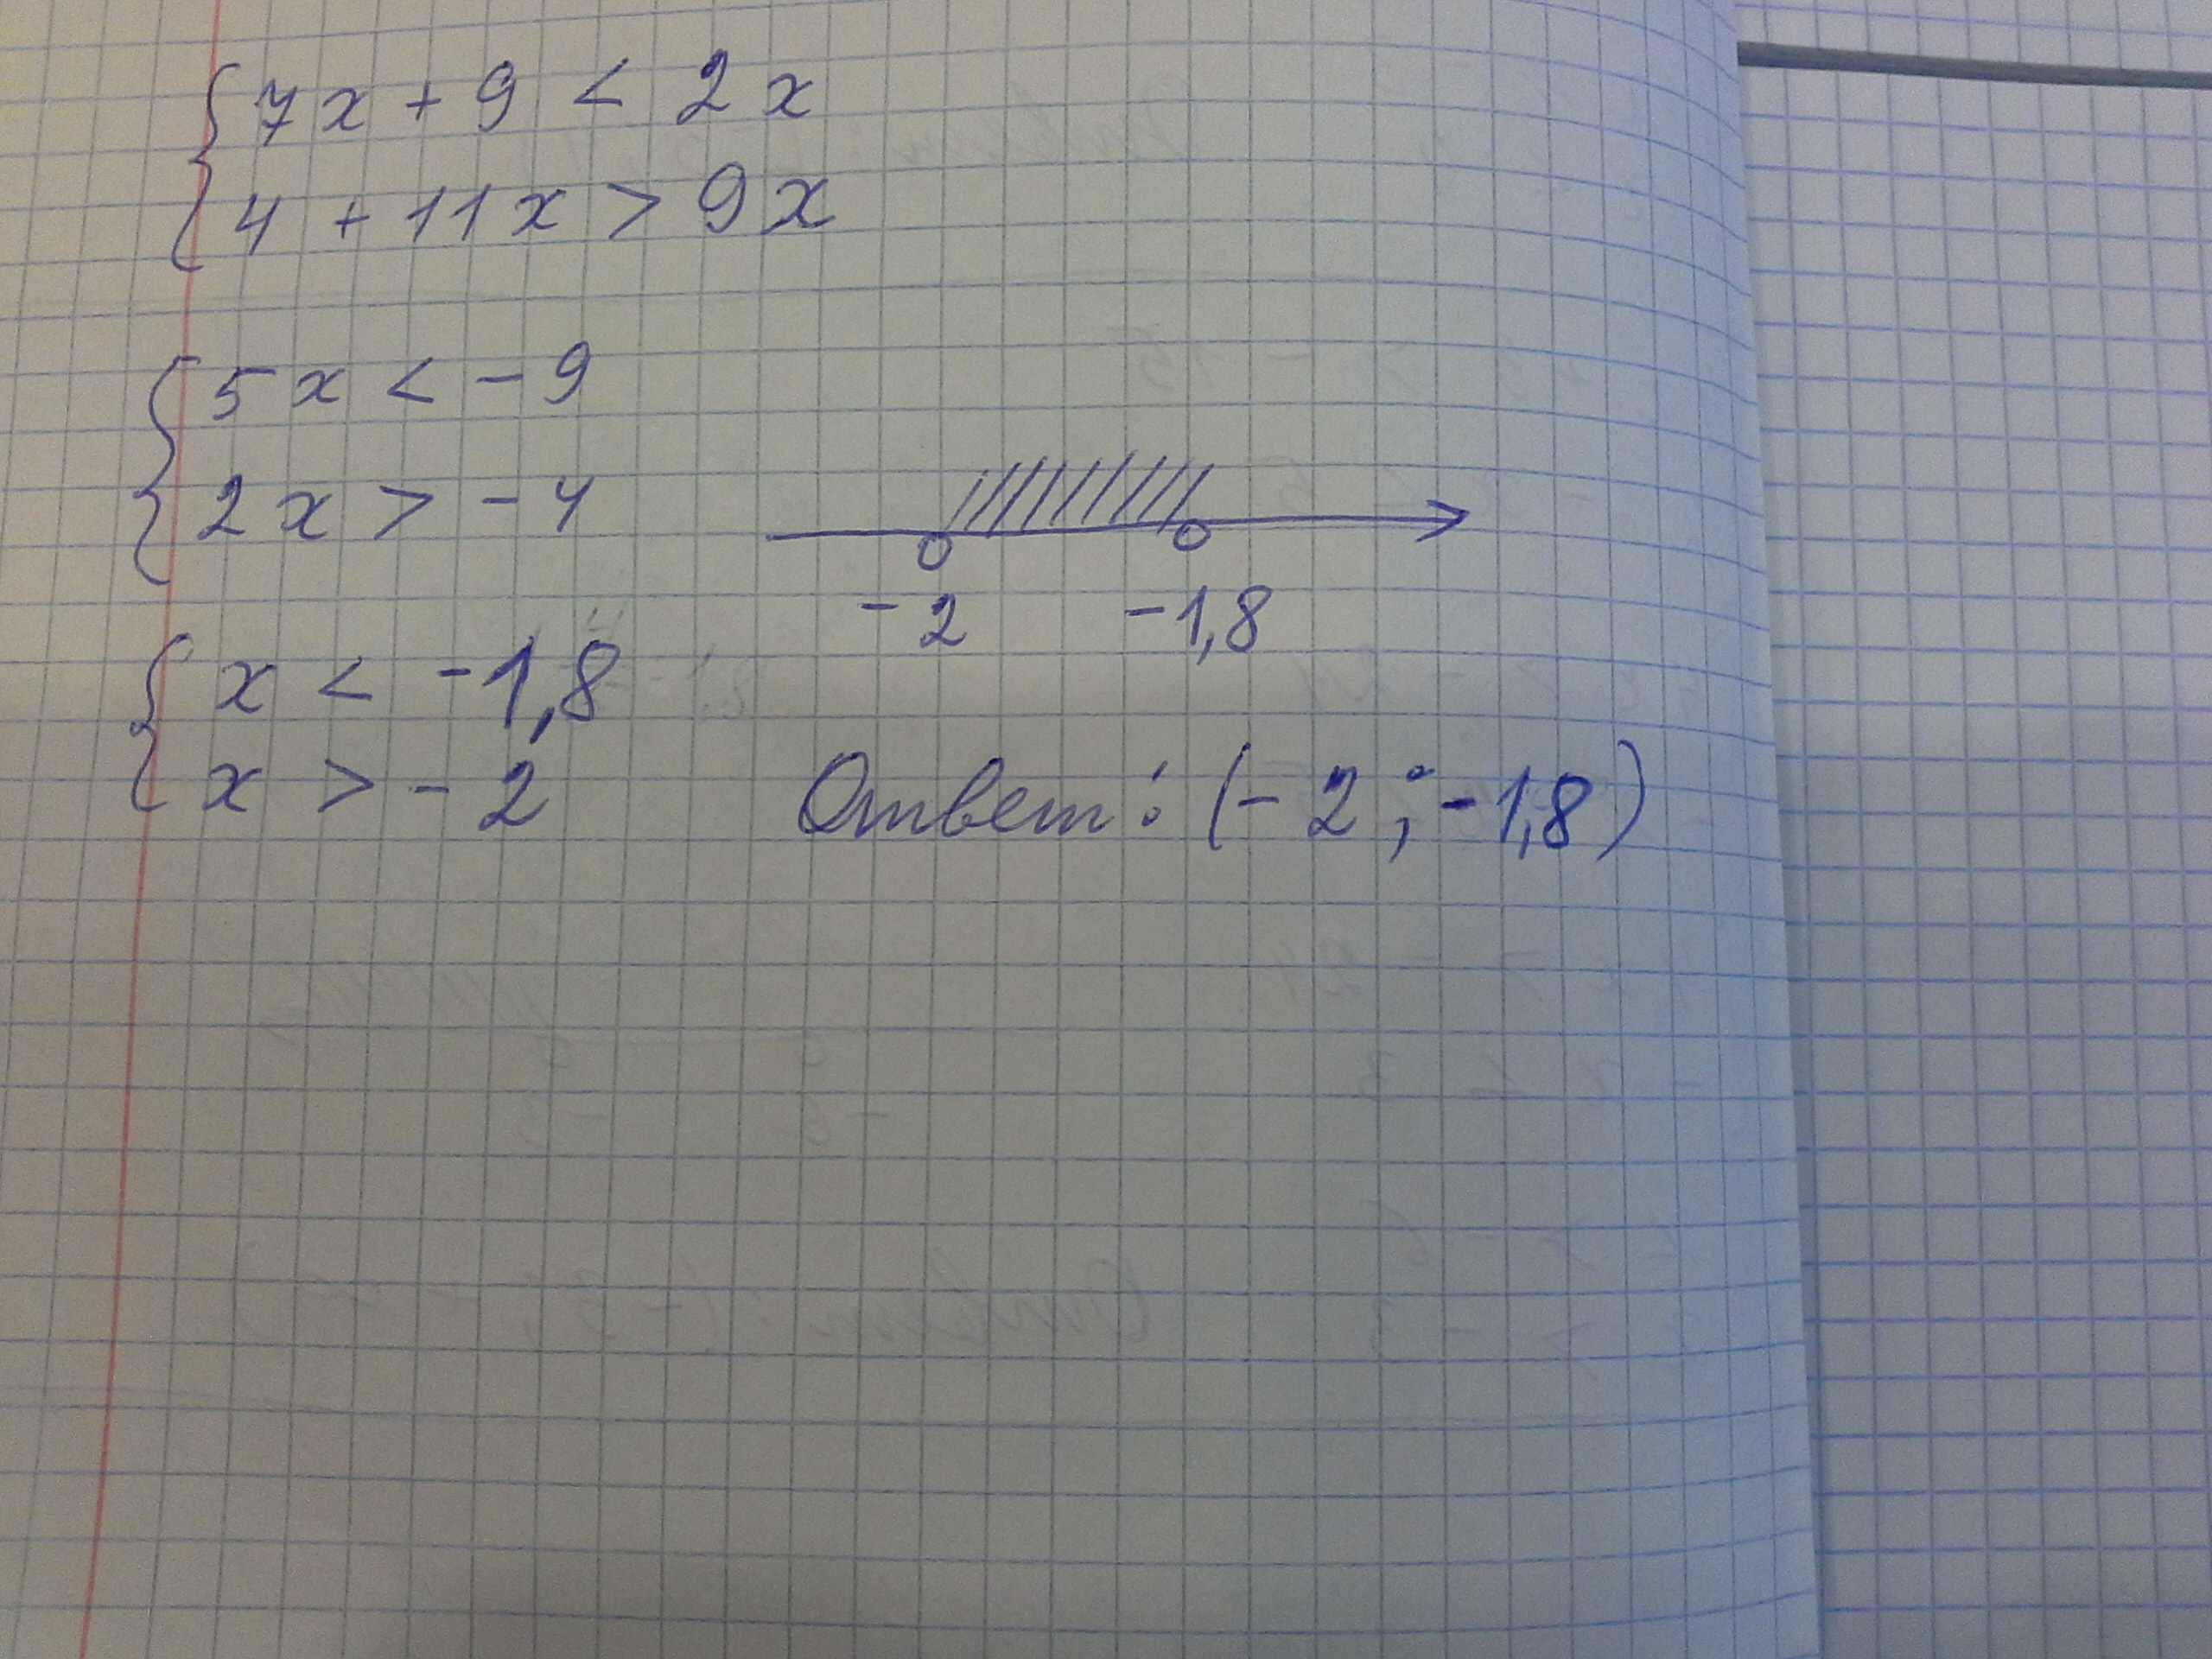 7x + 9 < 2x
4 + 11x > 9x
5x < -9
2x > -4
-2 -1,8
x < -1,8
x > -2
Ответ: (-2; -1,8)